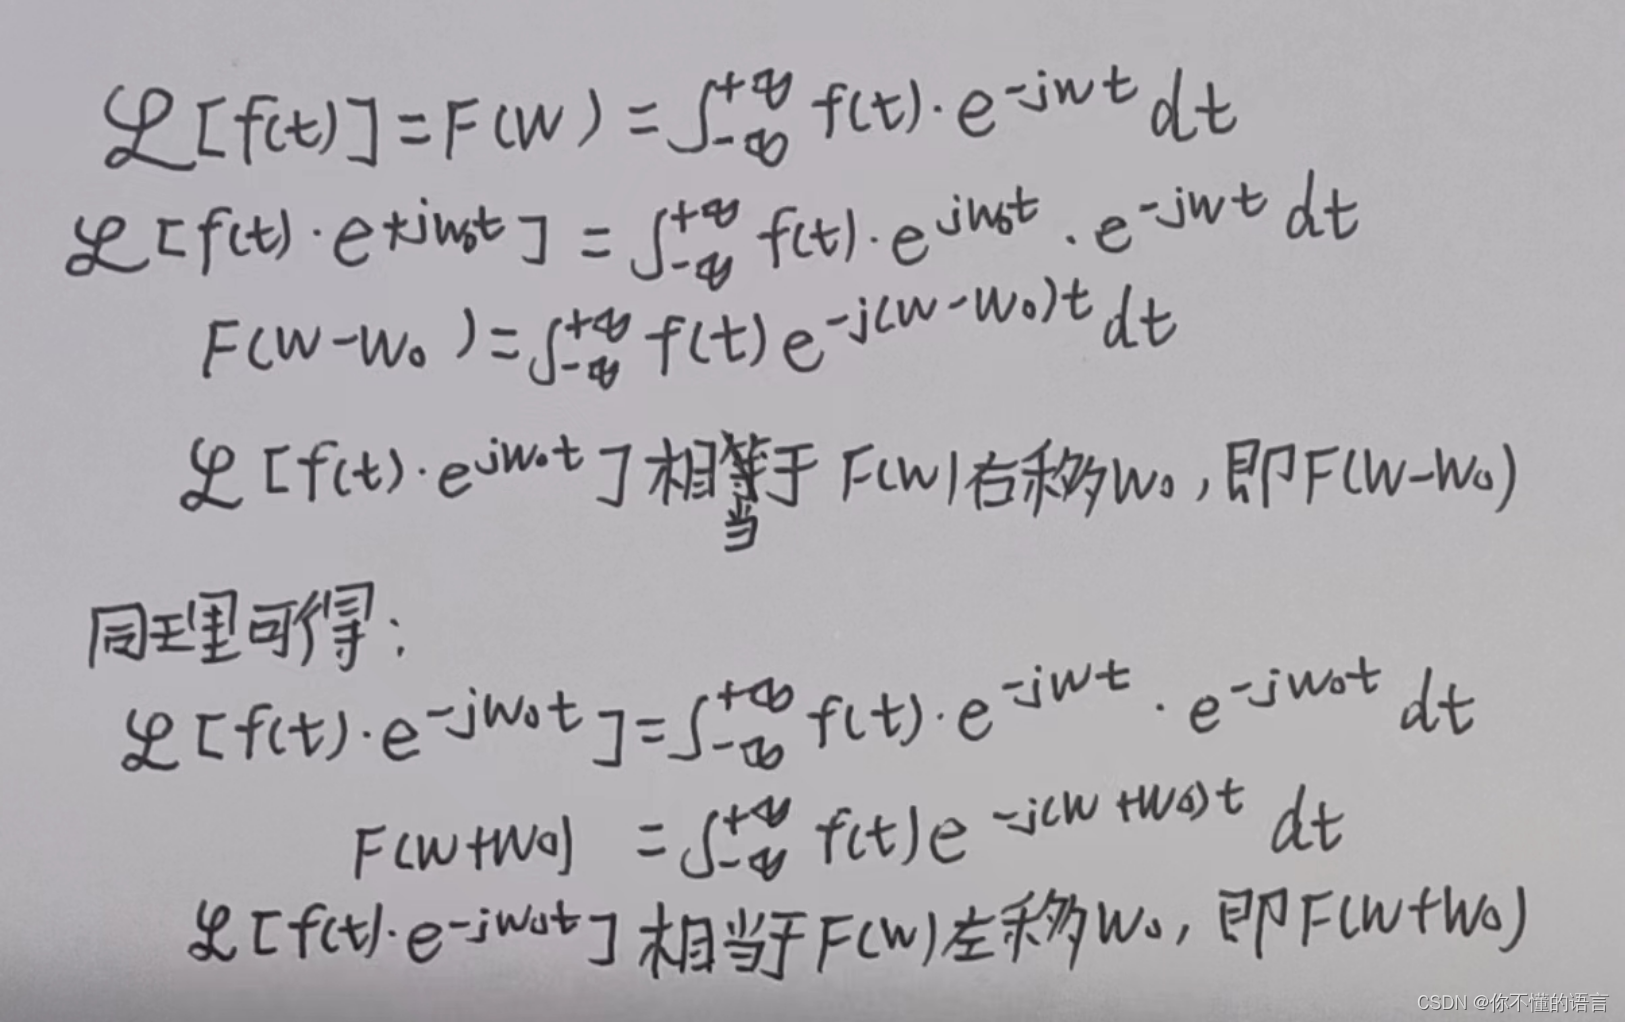 ℒ[f(t)] = F(w) = ∫_{-∞}^{+∞} f(t)·e^{-jwt} dt
ℒ[f(t)·e^{+jw₀t}] = ∫_{-∞}^{+∞} f(t)·e^{jw₀t}·e^{-jwt} dt
F(w-w₀) = ∫_{-∞}^{+∞} f(t) e^{-j(w-w₀)t} dt
ℒ[f(t)·e^{jw₀t}] 相当于 F(w) 右移w₀, 即F(w-w₀)
同理可得:
ℒ[f(t)·e^{-jw₀t}] = ∫_{-∞}^{+∞} f(t)·e^{-jwt}·e^{-jw₀t} dt
F(w+w₀) = ∫_{-∞}^{+∞} f(t) e^{-j(w+w₀)t} dt
ℒ[f(t)·e^{-jw₀t}] 相当于 F(w) 左移w₀, 即F(w+w₀)
CSDN @你不懂的语言